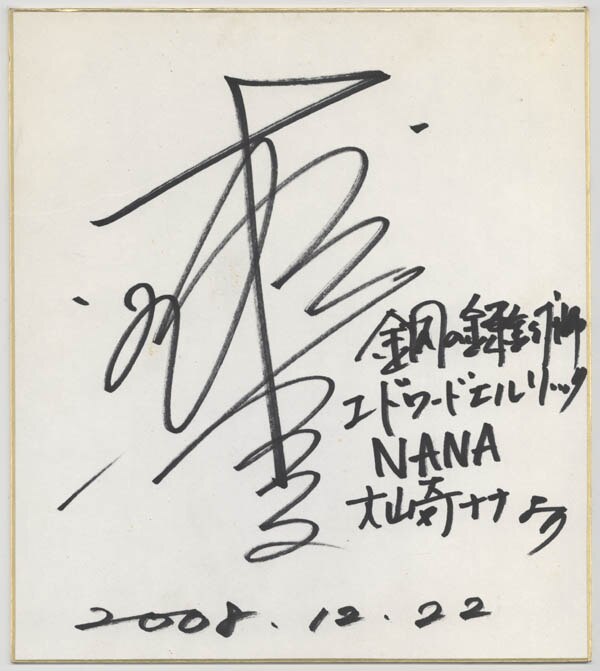 鋼の錬金術師
エドワードエルリック
NANA
大崎ナナより
2008.12.22